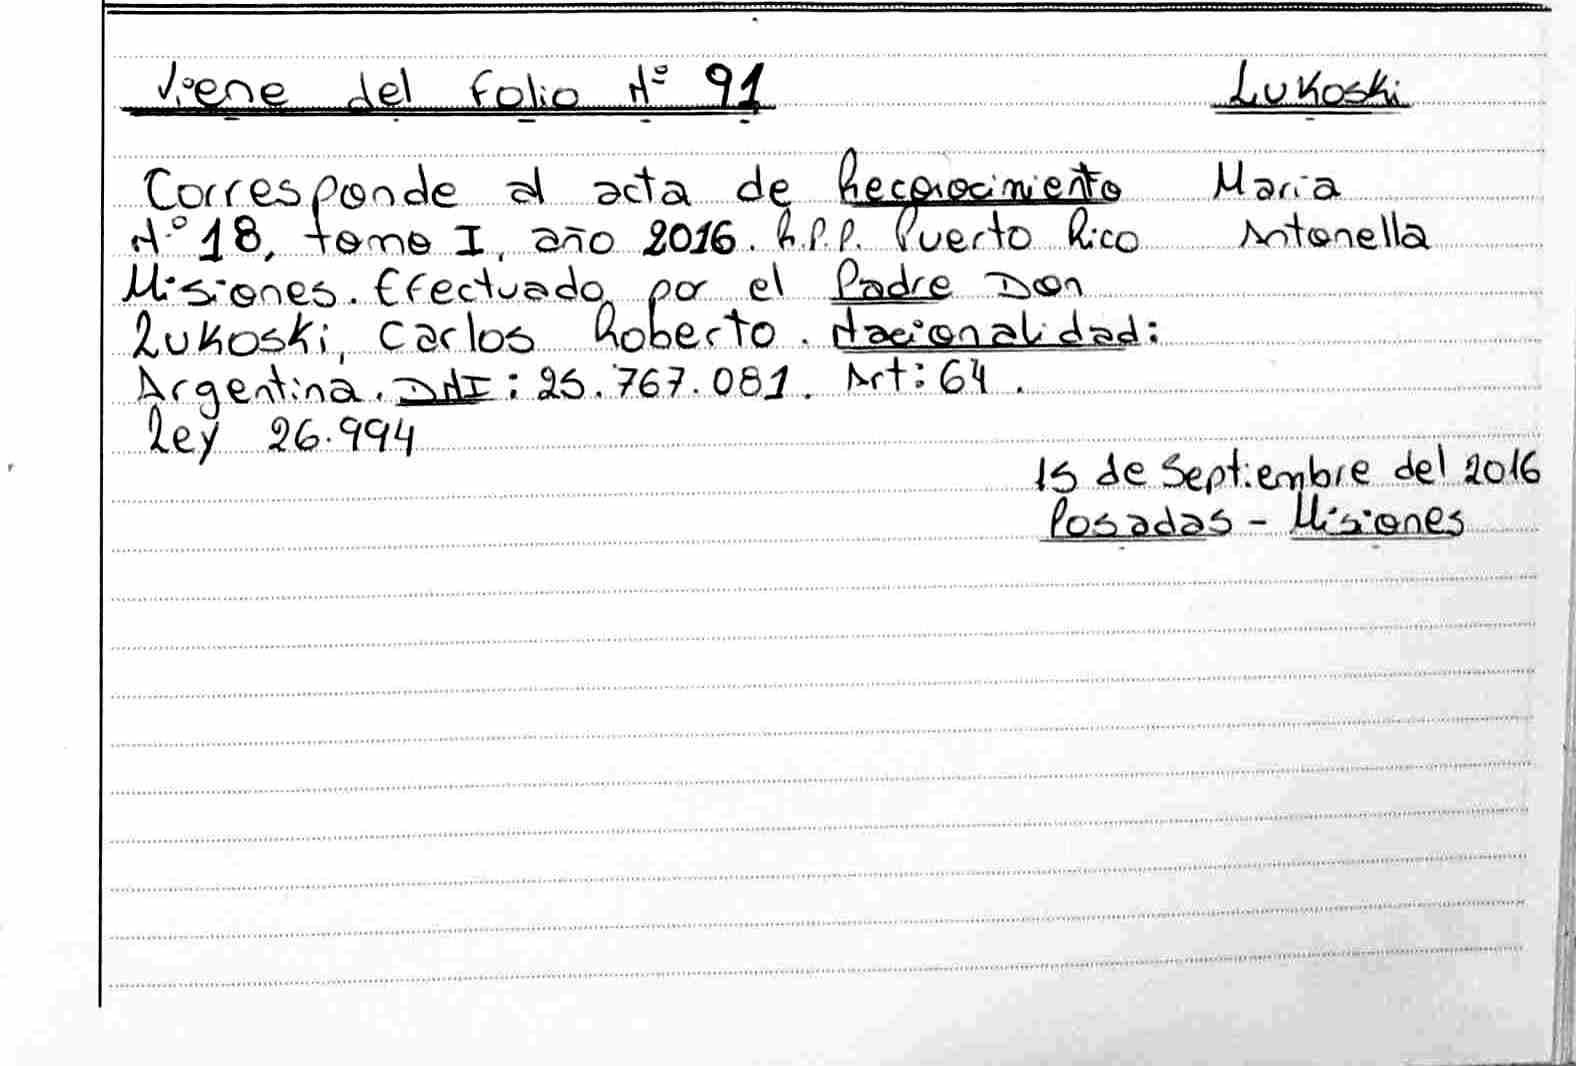 Viene del Folio Nº 91
Lukoski
Corresponde al acta de Reconocimiento
Maria
Nº 18, tomo I, año 2016. R.P.P. Puerto Rico
Antonella
Misiones. Efectuado por el Padre Don
Lukoski, Carlos Roberto. Nacionalidad:
Argentina. DNI: 25.767.081. Art: 64.
Ley 26.994
15 de Septiembre del 2016
Posadas - Misiones